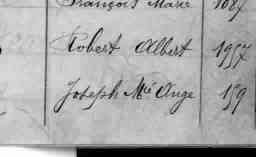 François Marie 1087
Robert Albert 1957
Joseph Mie Ange 159